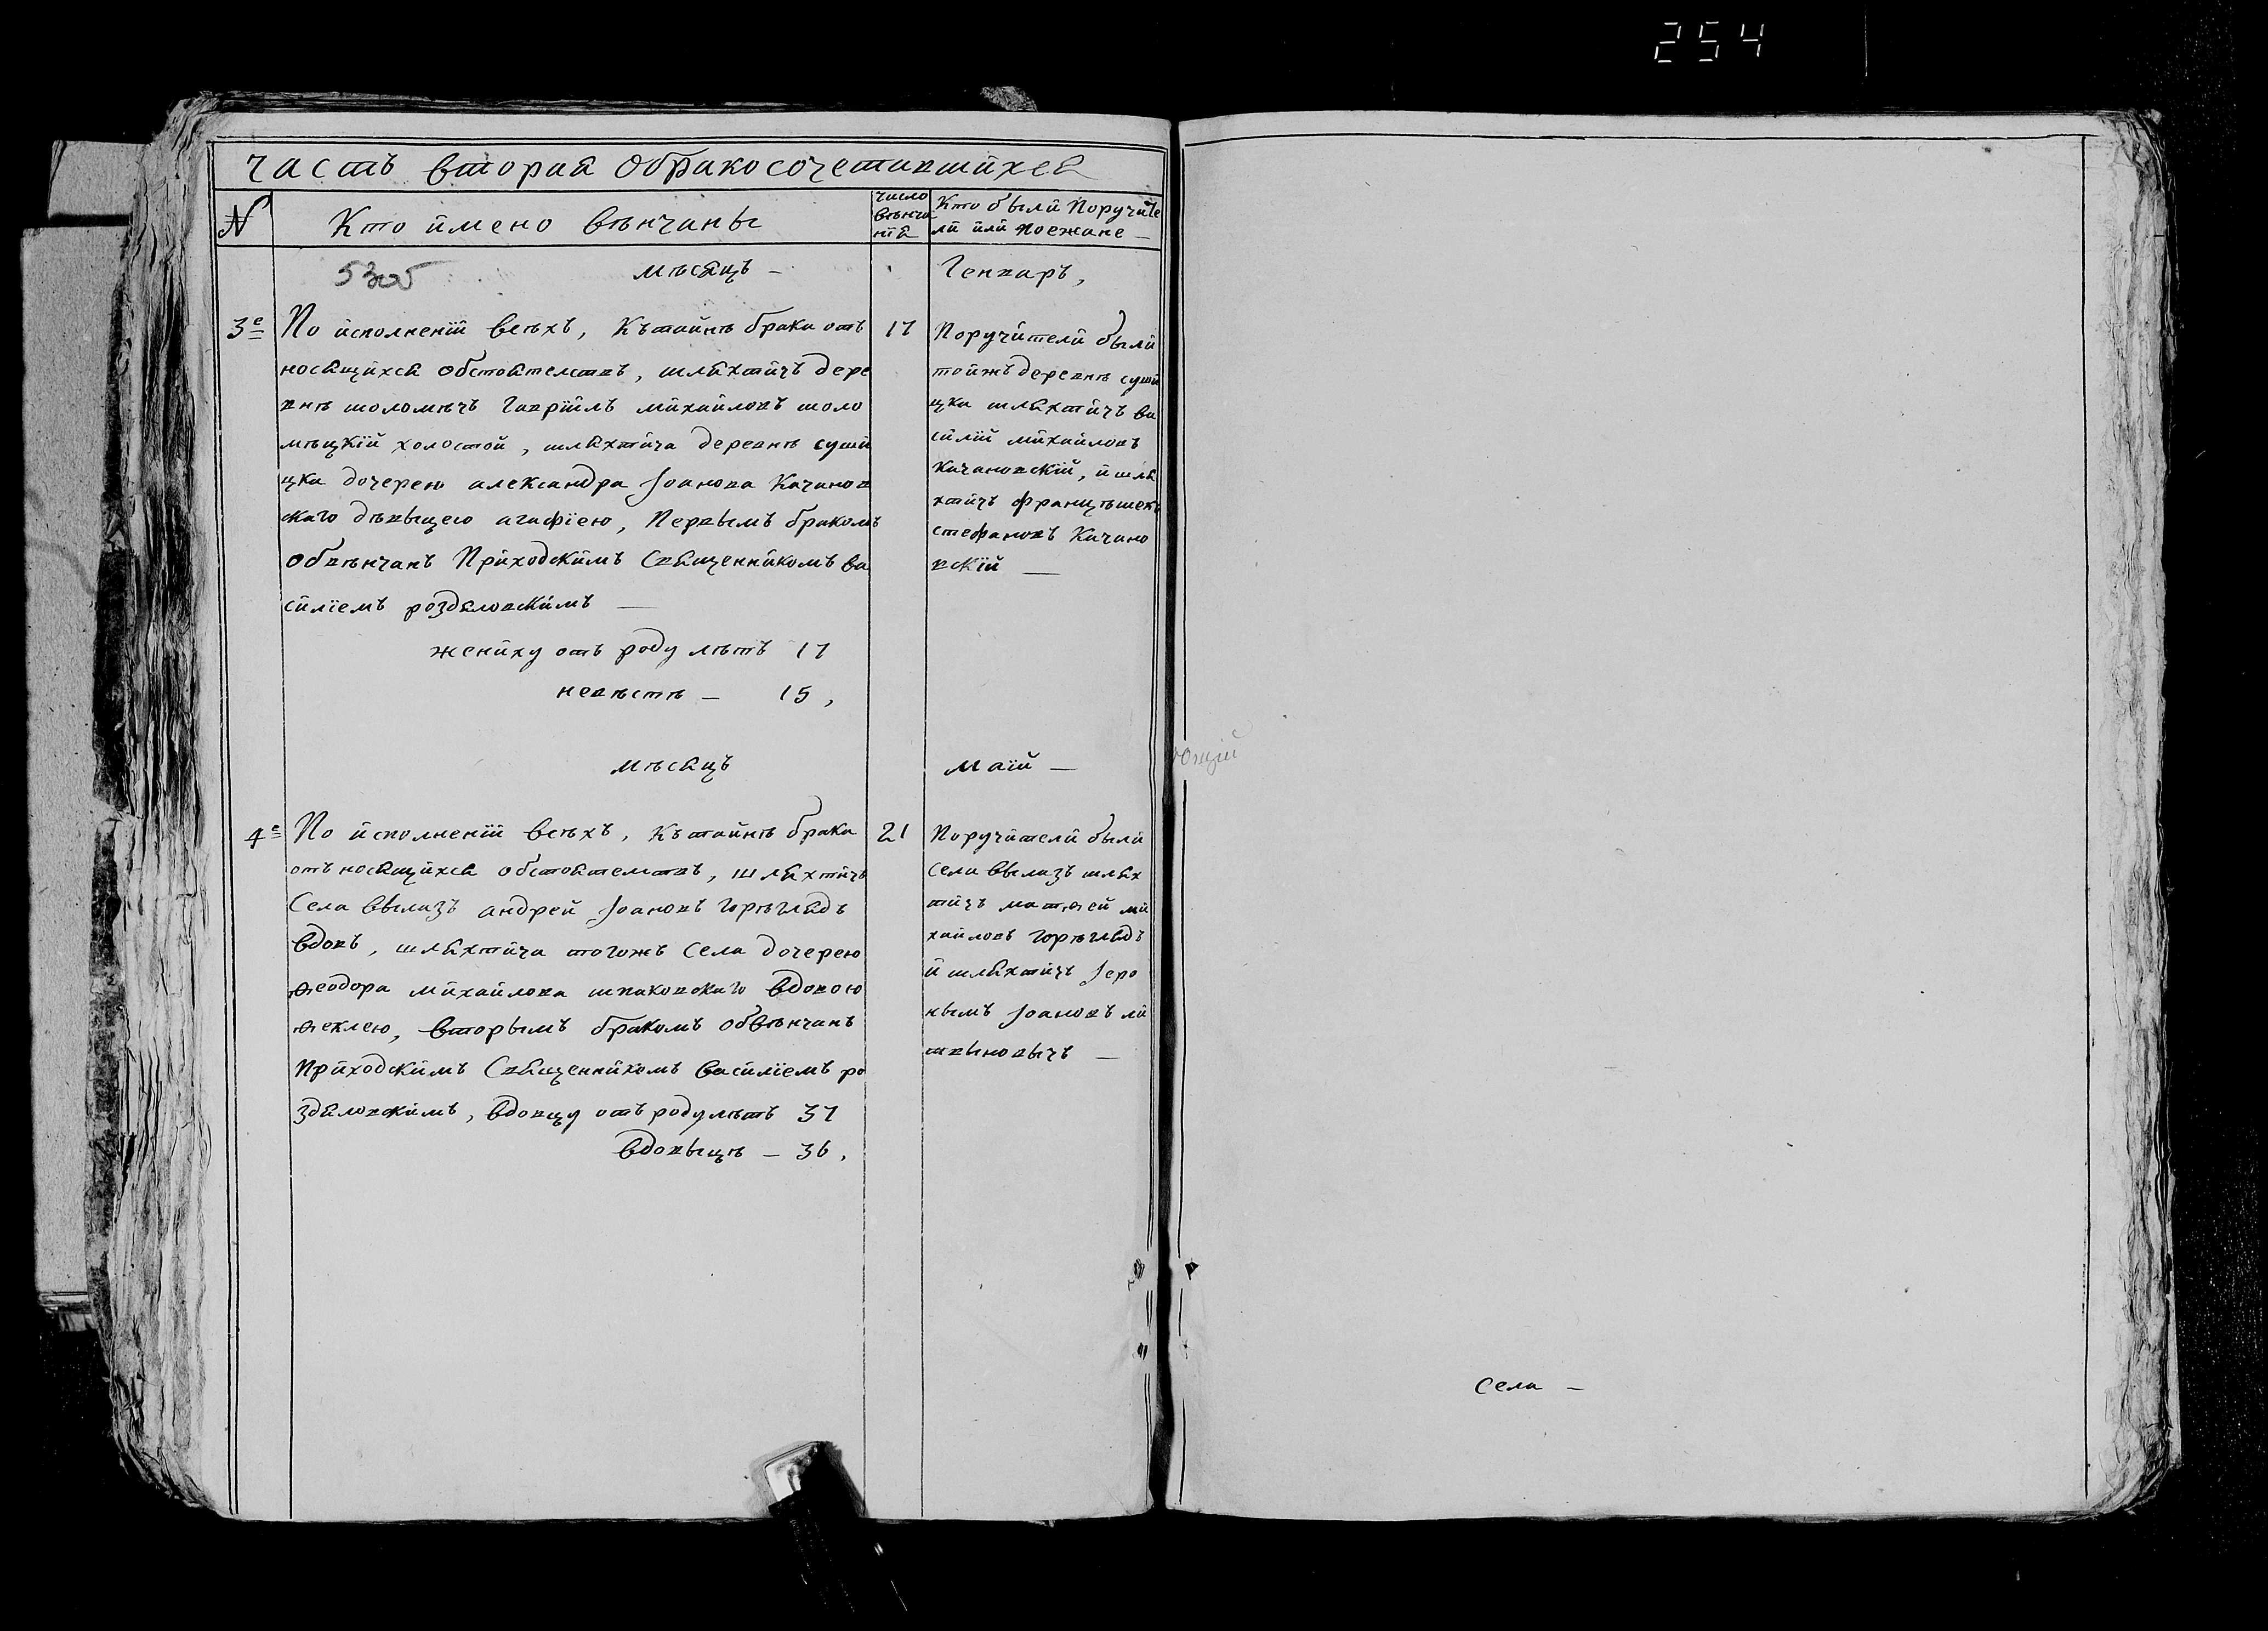 254
часть вторая обракосочетавшихся
№
Кто имено вѣнчаны
число вѣнча нїя
Кто были Поручите ли или поежане —
мѣсяцъ —
Генварь,
3е
По исполненїи всѣхъ, къ тайнѣ брака отъ
носящихся обстоятелствъ, шляхтичъ дере
внѣ шоломѣчъ гаврїилъ михайловъ шоло
мѣцкїй холостой, шляхтича деревнѣ суши
цка дочерею александра Іоанова Качанов
скаго дѣвыцею агафїею, Первымъ бракомъ
обвѣнчанъ Приходскимъ Священникомъ ва
силїемъ роздяловскимъ —
жениху отъ роду лѣтъ 17
невѣстѣ — 15,
17
Поручители были
тоижъ деревнѣ суши
цка шляхтичъ ва
силїй михайловъ
Качановскїй, и шля
хтичъ францѣшекъ
стефановъ Качано
вскїй —
мѣсяцъ
маїй —
4е
По исполненїи всѣхъ, къ тайнѣ брака
отъносящихся обстоятелствъ, шляхтичъ
Села вылазъ андрей Іоановъ горѣглядъ
вдовъ, шляхтича тогожъ Села дочерею
ѳеодора михайлова шпаковскаго вдовою
ѳеклею, вторымъ бракомъ обвѣнчанъ
Приходскимъ Священникомъ василїемъ ро
здяловскимъ, вдовцу отъ роду лѣтъ 37
вдовыцѣ — 36,
21
Поручители были
села вылазъ шлях
тичъ матѳей ми
хайловъ горѣглядъ
и шляхтичъ Іеро
нымъ Іоановъ ли
твыновычъ —
ющїй
Села —